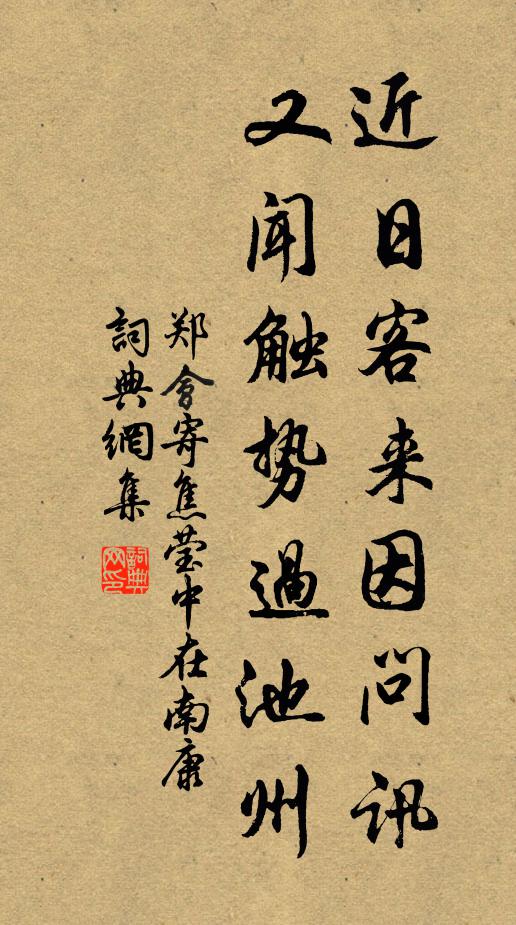 近日客来因问讯
又闻触势過池州
郑會寄焦莹中在南康
詞典網集
詞典
网印